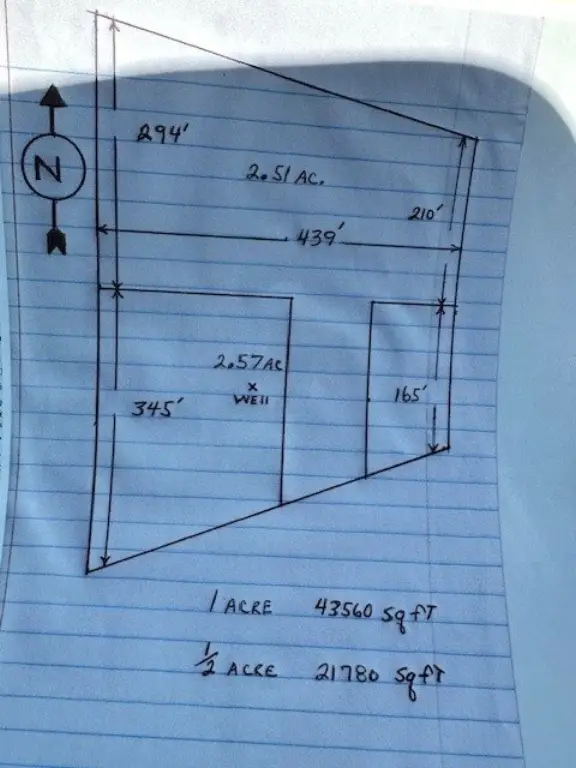 294'
N
2.51 AC.
210'
439'
2.57 AC
x
WEll
345'
165'
1 ACRE 43560 SqfT
1/2 ACRE 21780 SqfT